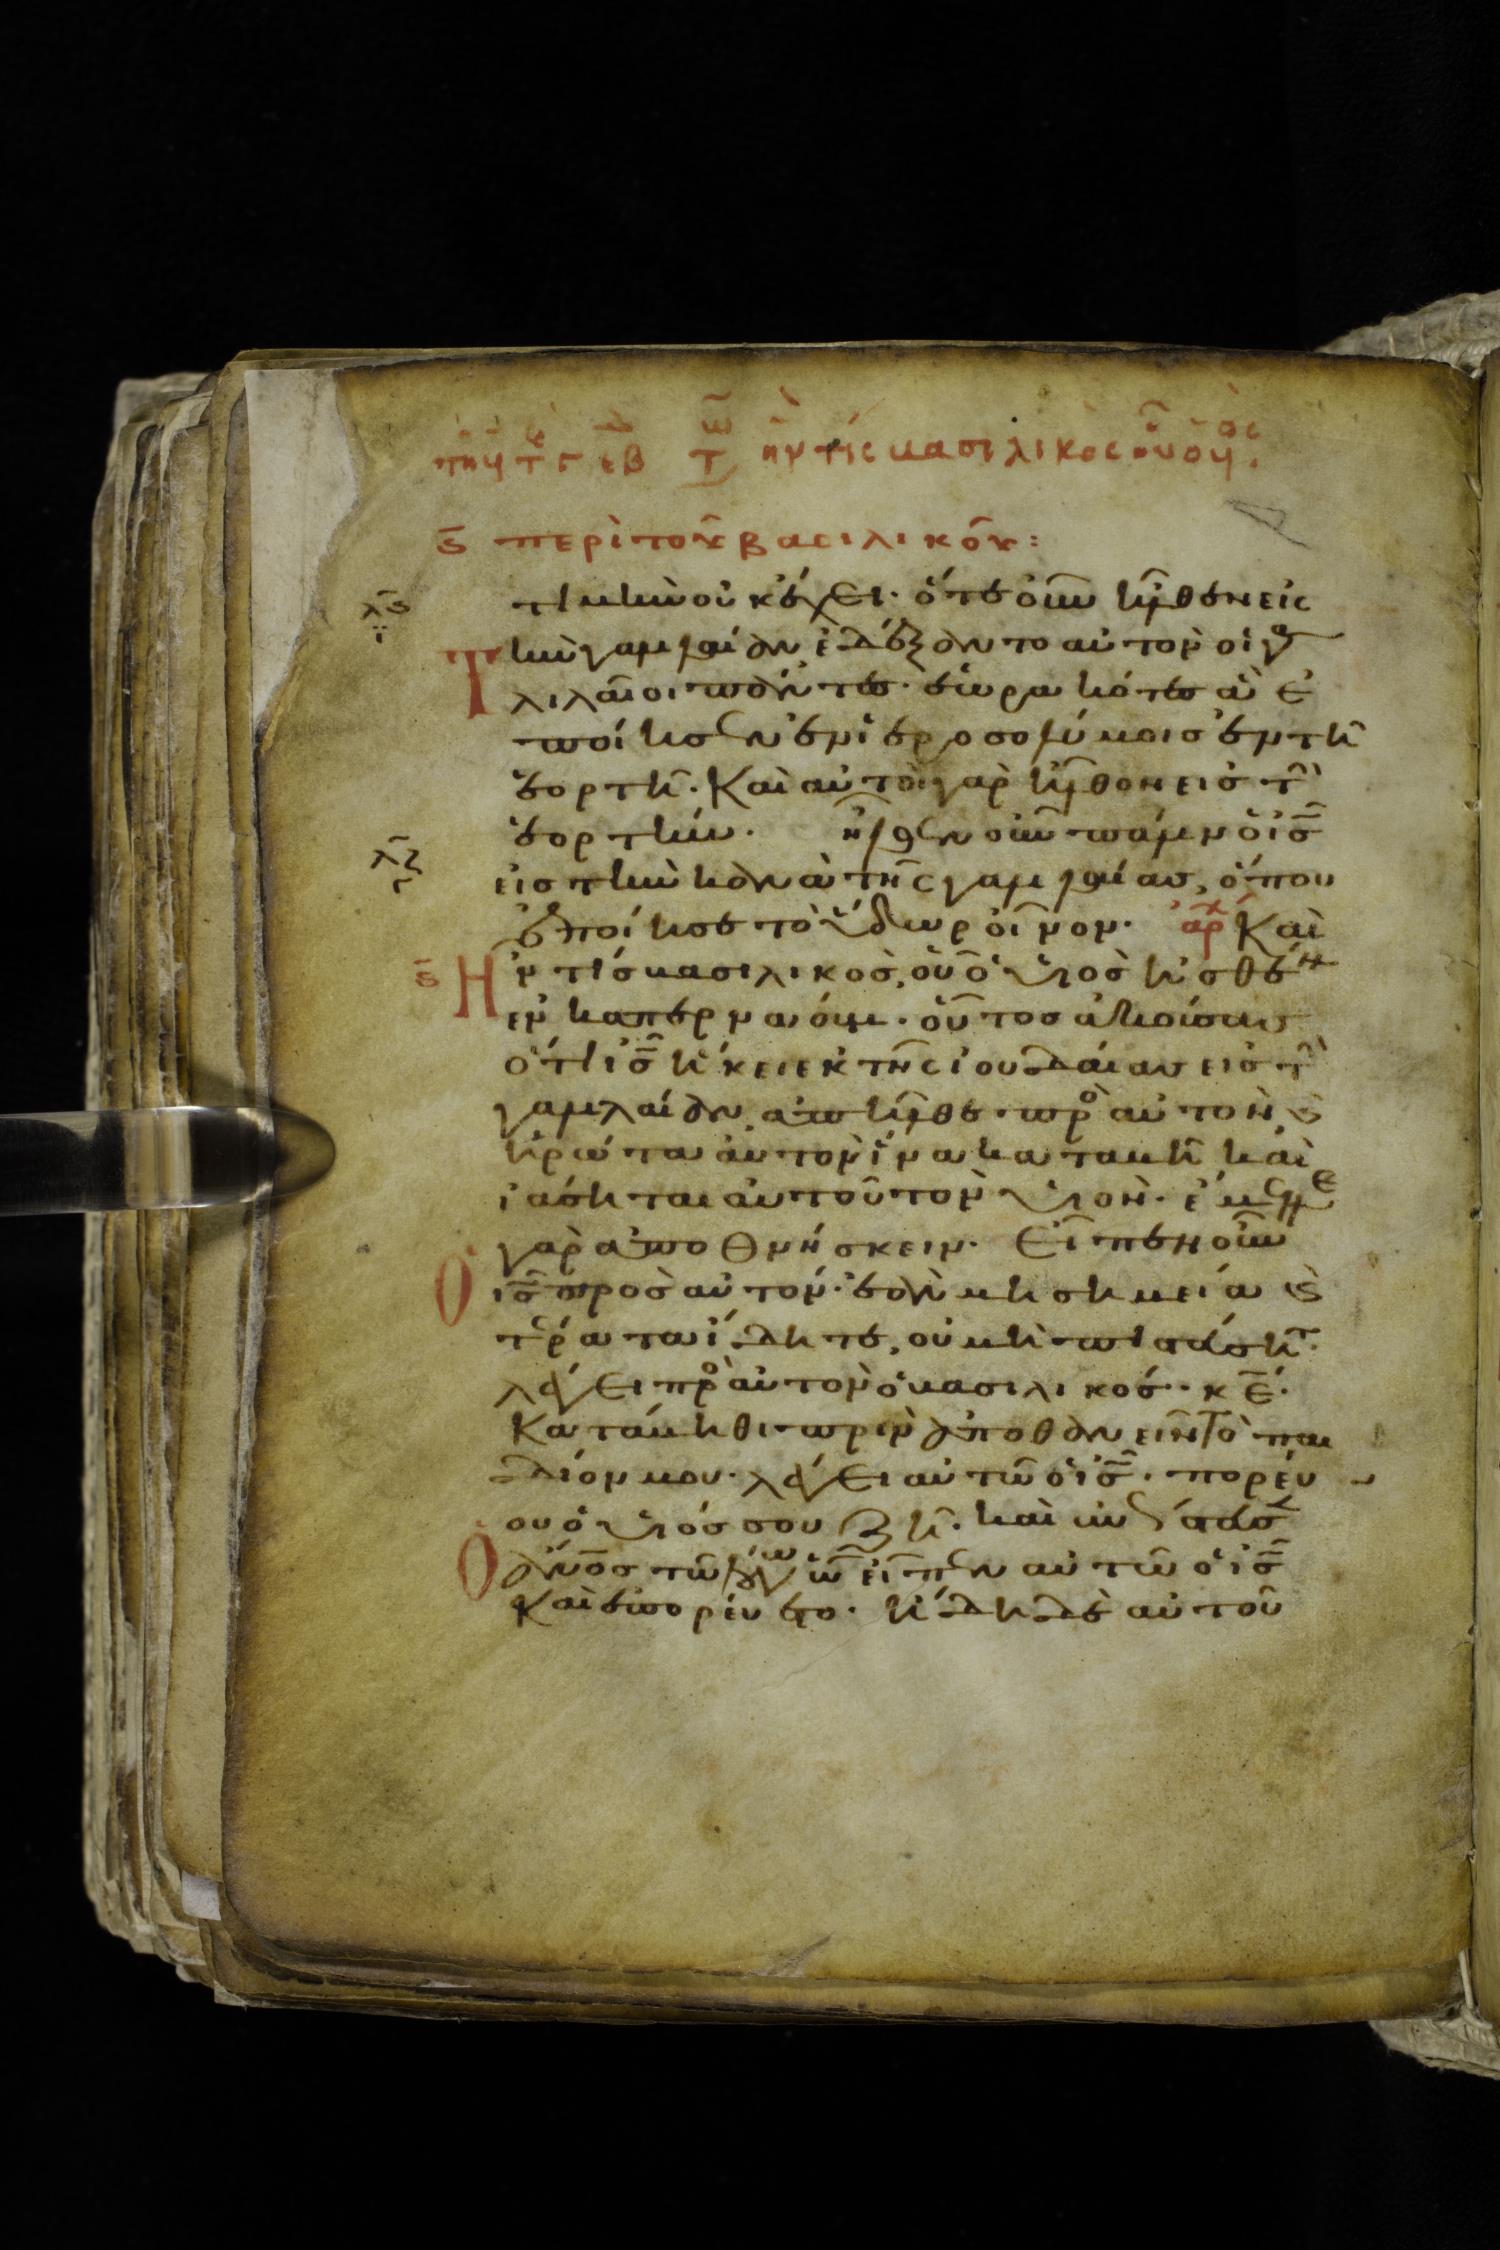 ϛ̅ περὶ τοῦ βασιλικοῦ:
τιμὴν οὐκ ἔχει· ὅτε οὖν ἦλθεν εἰς
τὴν γαλιλαίαν ἐδέξαντο αὐτὸν οἱ γα
λιλαῖοι πάντες· ἑωρακότες ἃ ἐ
ποίησεν ἐν ἱεροσολύμοις ἐν τῆ
ἑορτῆ· Καὶ αὐτοὶ γὰρ ἦλθον εἰς τὴν
ἑορτήν· ἦλθεν οὖν πάλιν ὁ ις̅
εἰς τὴν κανὰ τῆς γαλιλαίας, ὅπου
ἐποίησε τὸ ὕδωρ οἶνον· ἀρχ Καὶ
ϛ̅ Ἦν τίς βασιλικὸς, οὗ ὁ υἱὸς ἠσθέν
ει ἐν καπερναούμ· οὗτος ἀκούσας
ὅτι ις̅ ἥκει ἐκ τῆς ἰουδαίας εἰς τὴν
γαλιλαίαν, ἀπῆλθε πρὸ αὐτὸν, ϗ
ἠρώτα αὐτὸν ἵνα καταβῆ καὶ
ἰάσηται αὐτοῦ τὸν υἱὸν· ἔμελλε
γὰρ ἀποθνήσκειν· Εἶπεν οὖν
Ὁ ις̅ πρὸς αὐτόν· ἐὰν μὴ σημεία ϗ
τέρατα ἴδητε, οὐ μὴ πιστεύσητ·
λέγει πρὸ αὐτὸν ὁ βασιλικός· κε̅·
Κατάβηθι πρὶν ἀποθανεῖν τὸ παι
δίον μου· λέγει αὐτῶ ὁ ις̅· πορεύ
ου ὁ υἱός σου ζῆ· καὶ ἐπίστευσεν
Ὁ ἄνος τῶ λόγω ὧ εἶπεν αὐτῶ ὁ ις̅
Καὶ ἐπορεύετο· ἤδη δὲ αὐτοῦ
λϛ̅
ϊ
λζ̅
γ